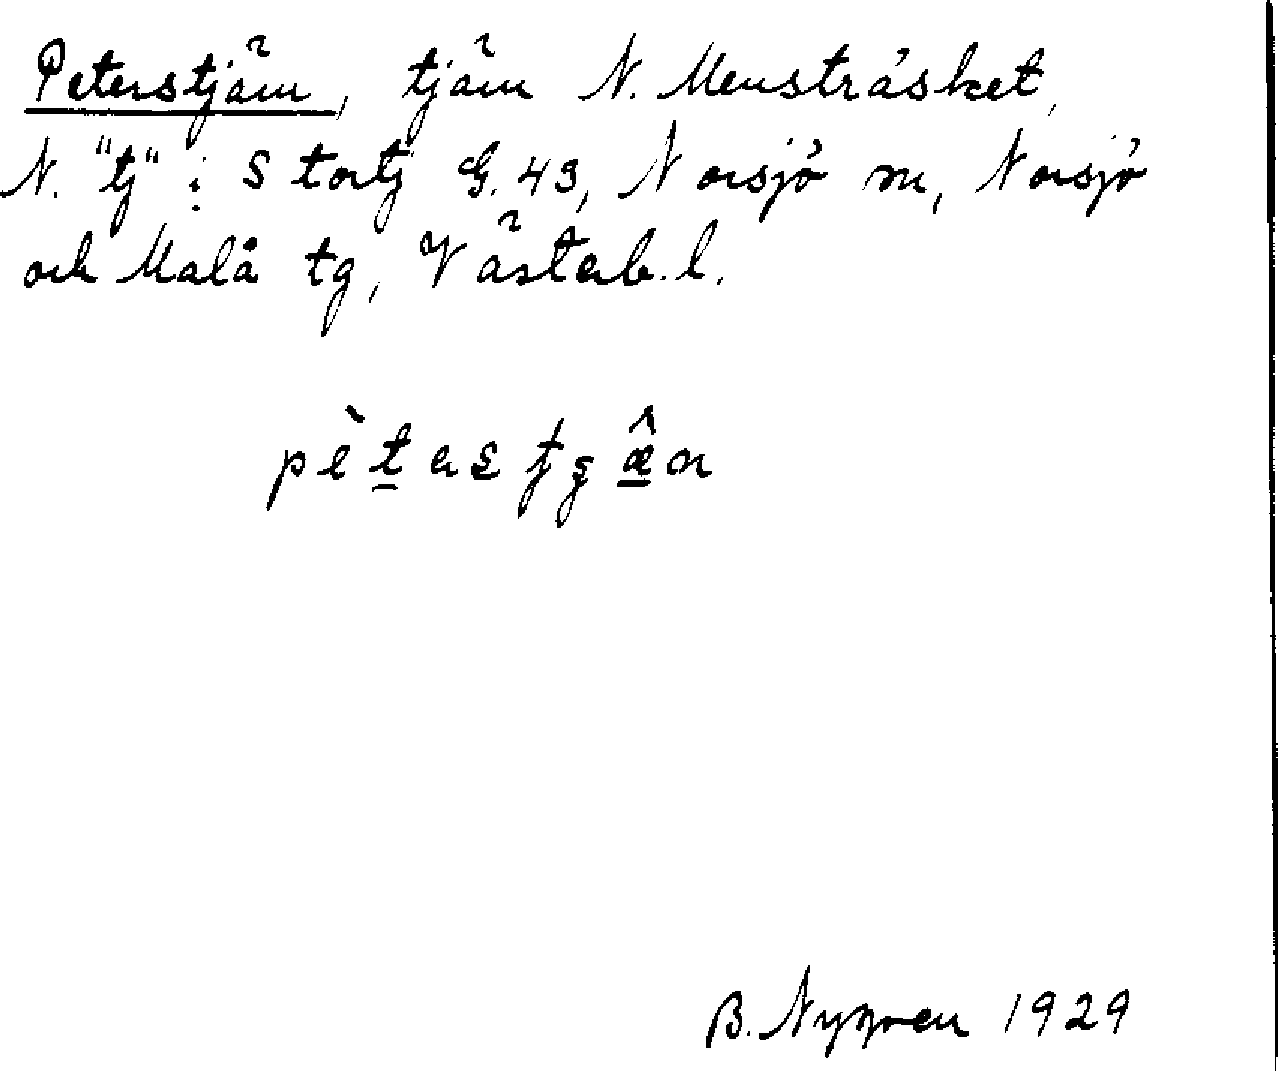 Peterstjärn, tjärn N. Mensträsket,
N. "tj" i Stortj G.43, Norsjö sn, Norsjö
och Malå tg, Västerb. l.
B. Nygren 1929